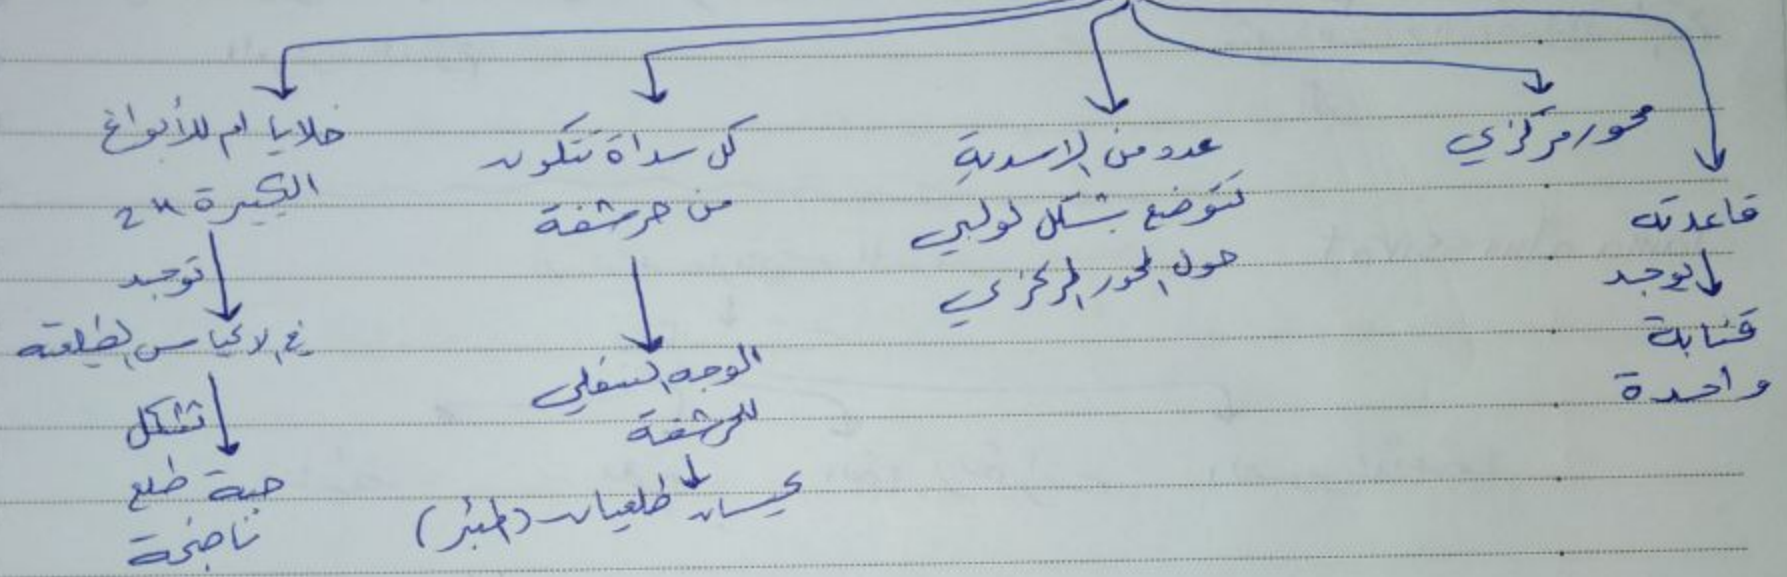 محور مركزي
قاعدته
يوجد
قنابة
واحدة
عدد من الاسدية
تتوضع بشكل لولبي
حول المحور المركزي
كل سداة تتكون
من حرشفة
الوجه السفلي
للحرشفة
كيسان طلعيان (المئبر)
خلايا ام للأبواغ
الكبيرة 2n
توجد
في الاكياس الطلعية
تشكل
حبة طلع
ناضجة